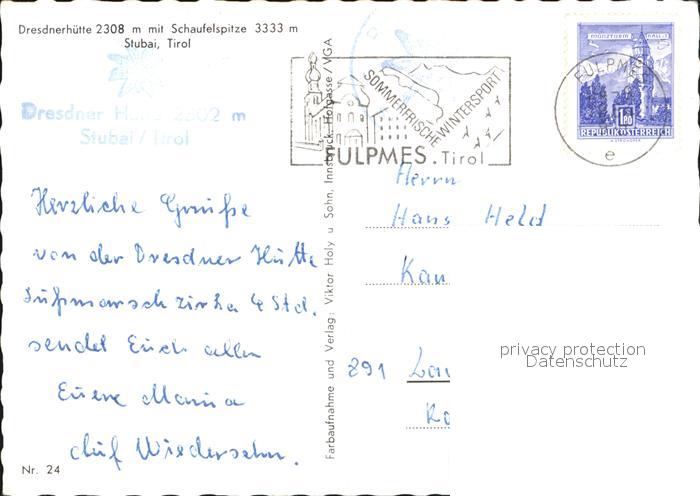 Dresdnerhütte 2308 m mit Schaufelspitze 3333 m
Stubai, Tirol
Dresdner H 2302 m
Stubai / Tirol
SOMMERFRISCHE
WINTERSPORT
FULPMES . Tirol
MÜNZTURM HALL
1.80
REPUBLIK ÖSTERREICH
FULPMES
e
Herzliche Grüße
von der Dresdner Hütte
Fußmarsch zirka 4 Std.
sendet Euch allen
Euere Maria
Auf Wiedersehn.
Nr. 24
Farbaufnahme und Verlag: Viktor Holy u. Sohn, Innsbruck, Hofgasse / VGA
Herrn
Hans Held
Kau
891 Lan
privacy protection
Datenschutz